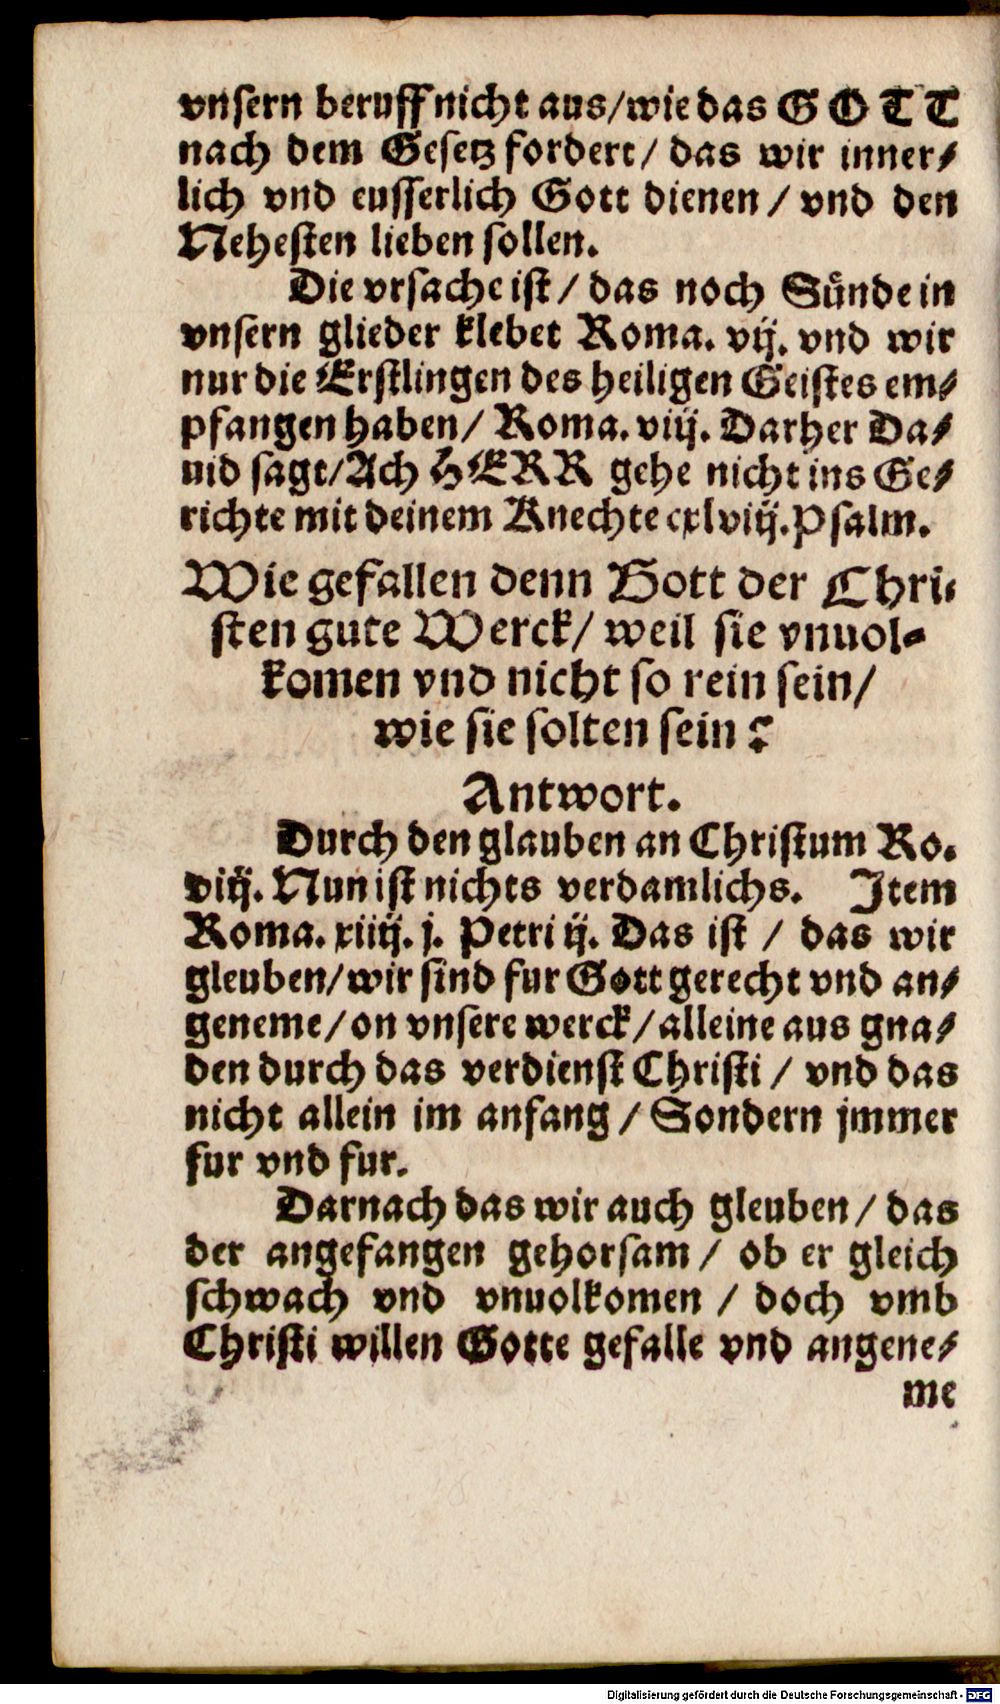 vnsern beruff nicht aus/wie das GOTT
nach dem Gesetz fordert/ das wir inner⸗
lich vnd eusserlich Gott dienen / vnd den
Nehesten lieben sollen.
Die vrsache ist / das noch Sünde in
vnsern glieder klebet Roma. vij. vnd wir
nur die Erstlingen des heiligen Geistes em⸗
pfangen haben/ Roma. viij. Darher Da⸗
uid sagt/Ach HERR gehe nicht ins Ge⸗
richte mit deinem Knechte cxlviij.Psalm.
Wie gefallen denn Gott der Chri⸗
sten gute Werck/ weil sie vnuol⸗
komen vnd nicht so rein sein/
wie sie solten sein?
Antwort.
Durch den glauben an Christum Ro.
viij. Nun ist nichts verdamlichs. Item
Roma. xiiij. j. Petri ij. Das ist / das wir
gleuben/wir sind fur Gott gerecht vnd an⸗
geneme/on vnsere werck/alleine aus gna⸗
den durch das verdienst Christi / vnd das
nicht allein im anfang / Sondern jmmer
fur vnd fur.
Darnach das wir auch gleuben / das
der angefangen gehorsam / ob er gleich
schwach vnd vnuolkomen / doch vmb
Christi willen Gotte gefalle vnd angene⸗
me
Digitalisierung gefördert durch die Deutsche Forschungsgemeinschaft - DFG